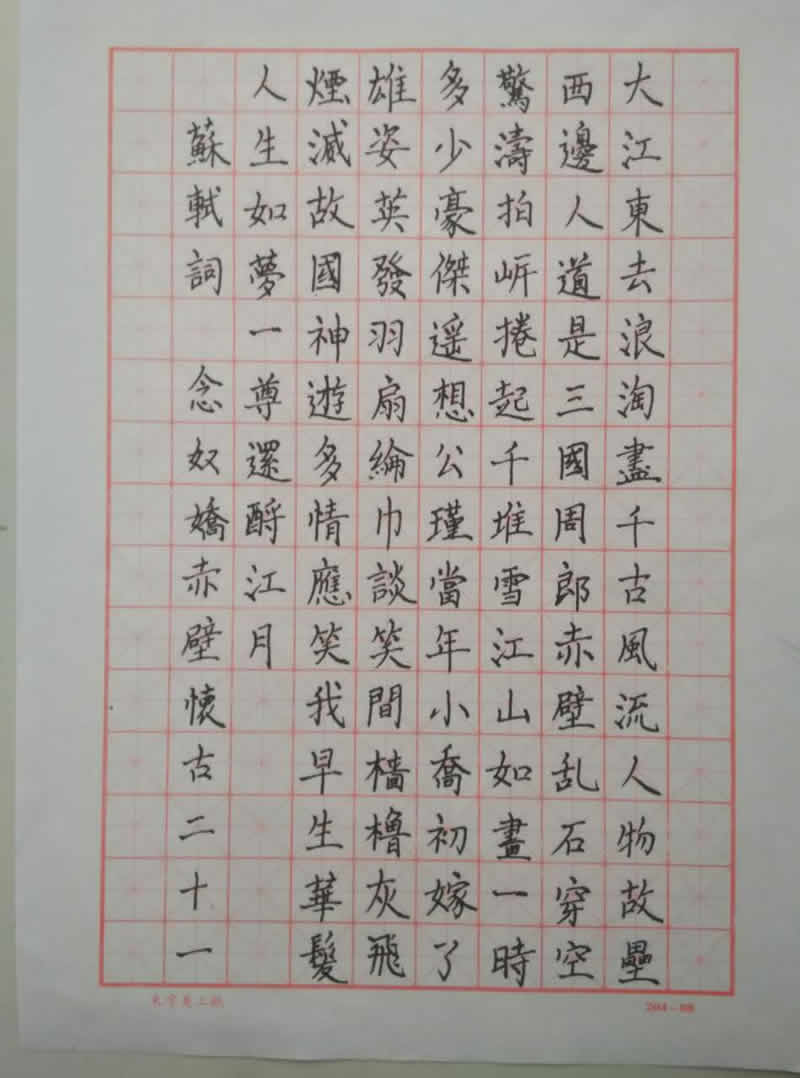 大江東去浪淘盡千古風流人物故壘
西邊人道是三國周郎赤壁乱石穿空
驚濤拍岍捲起千堆雪江山如畫一時
多少豪傑遥想公瑾當年小喬初嫁了
雄姿英發羽扇綸巾談笑間檣櫓灰飛
煙滅故國神遊多情應笑我早生華髮
人生如夢一尊還酹江月
蘇軾詞 念奴嬌赤壁懷古二十一